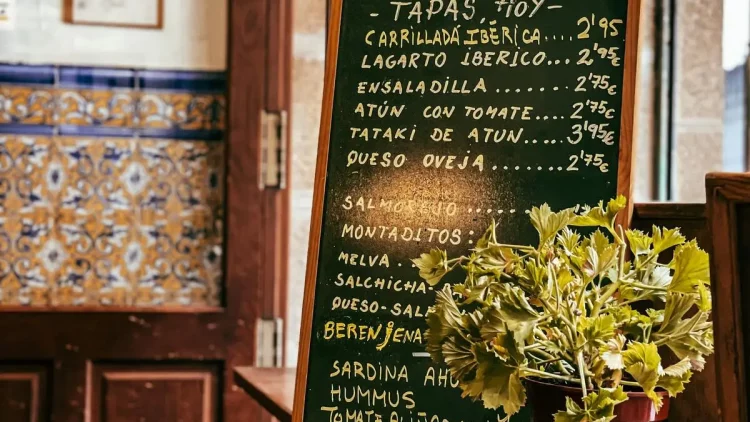 - TAPAS, HOY -
CARRILLADA IBÉRICA.... 2'95
LAGARTO IBERICO... 2'95€
ENSALADILLA ....... 2'75€
ATÚN CON TOMATE.... 2'75€
TATAKI DE ATUN ...... 3'95€
QUESO OVEJA ....... 2'75€
SALMOREJO ......
MONTADITOS:
MELVA ..
SALCHICHA-
QUESO-
BERENJENA
SARDINA
HUMMUS
TOMATE